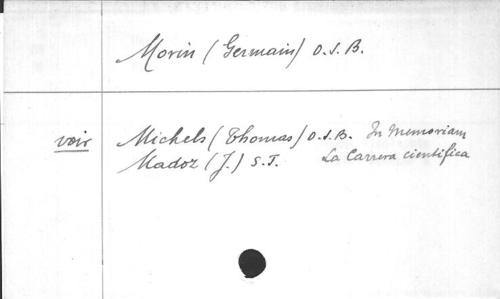 Morin (Germain) O.S.B.
voir Michels (Thomas) O.S.B. In Memoriam
Madoz (J.) S.J. La Carrera cientifica